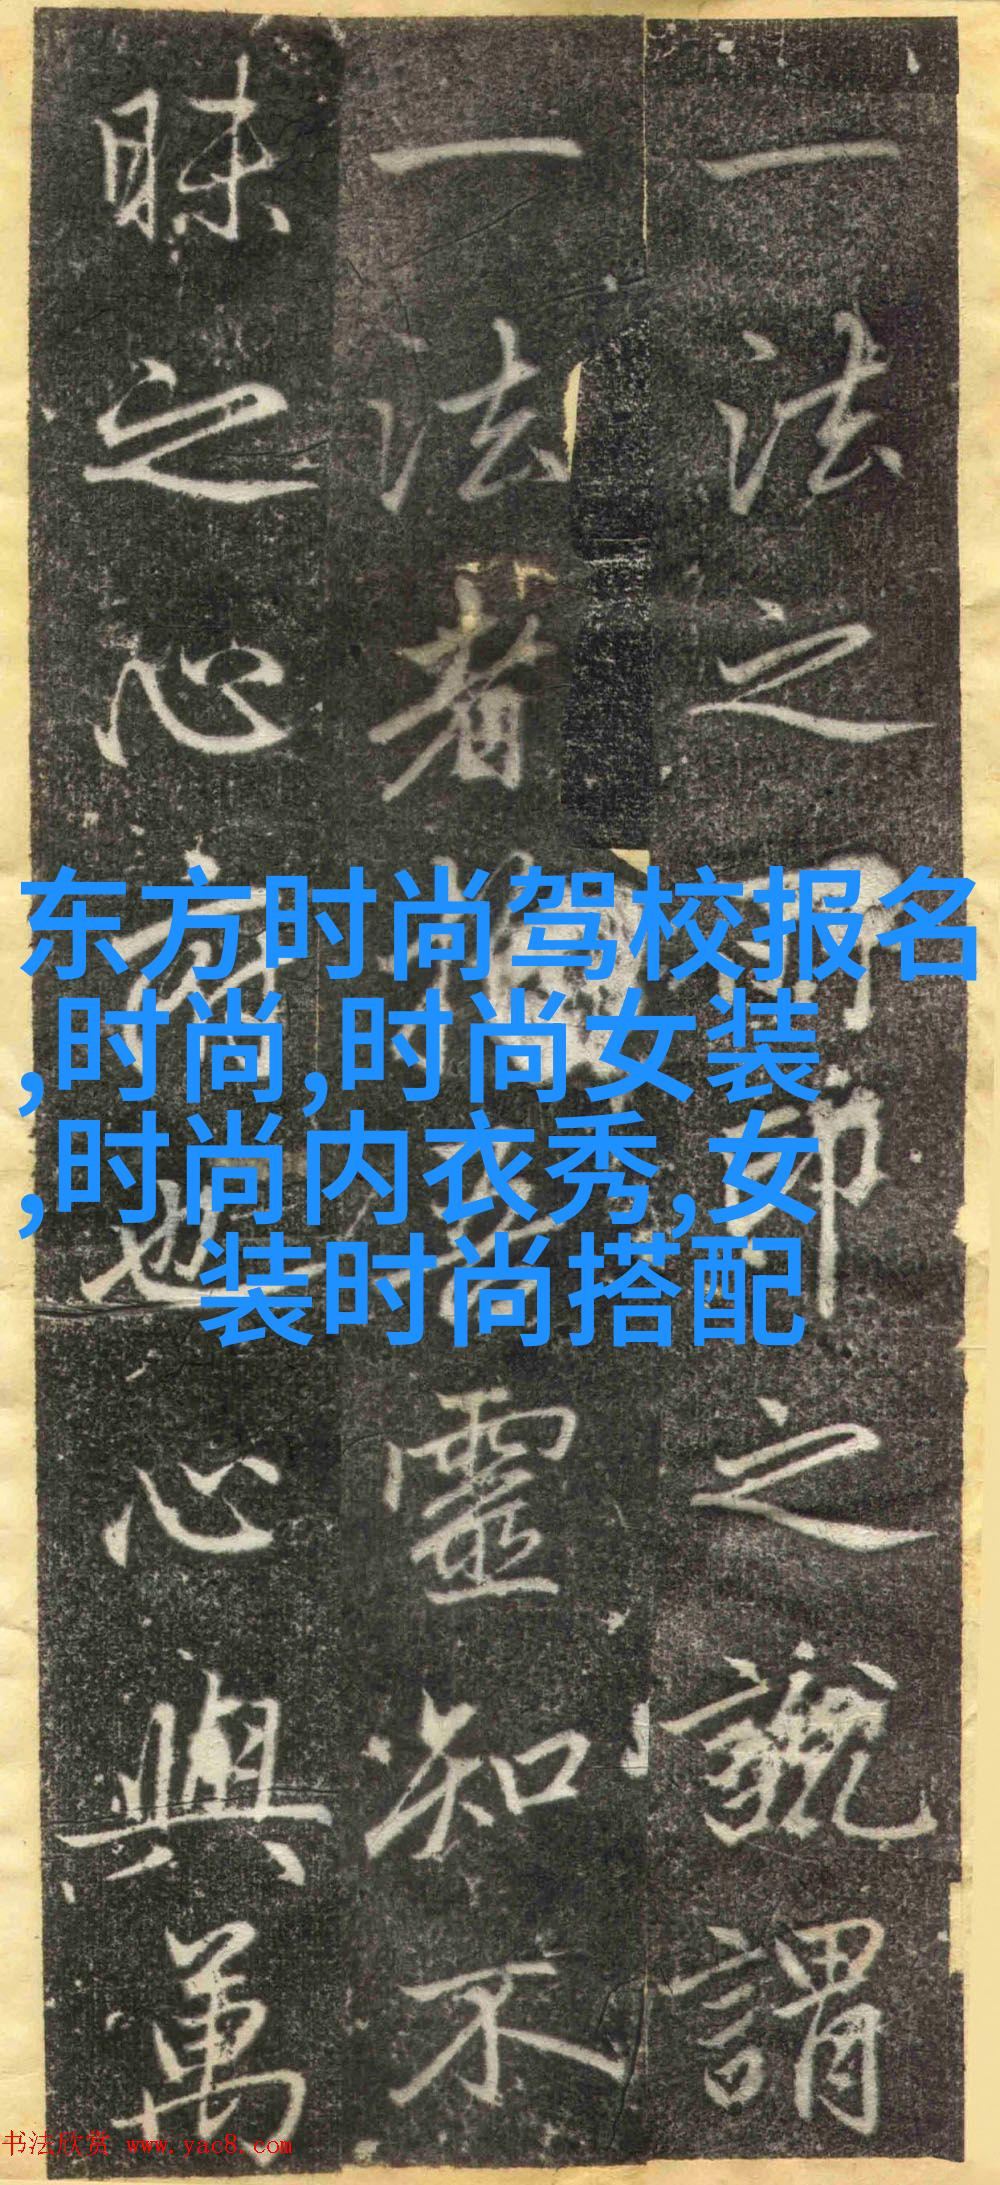 一法之印之謂
一法者靈知不
昧之心也心與萬
东方时尚驾校报名
,时尚,时尚女装
,时尚内衣秀,女
装时尚搭配
书法欣赏 www.yac8.com